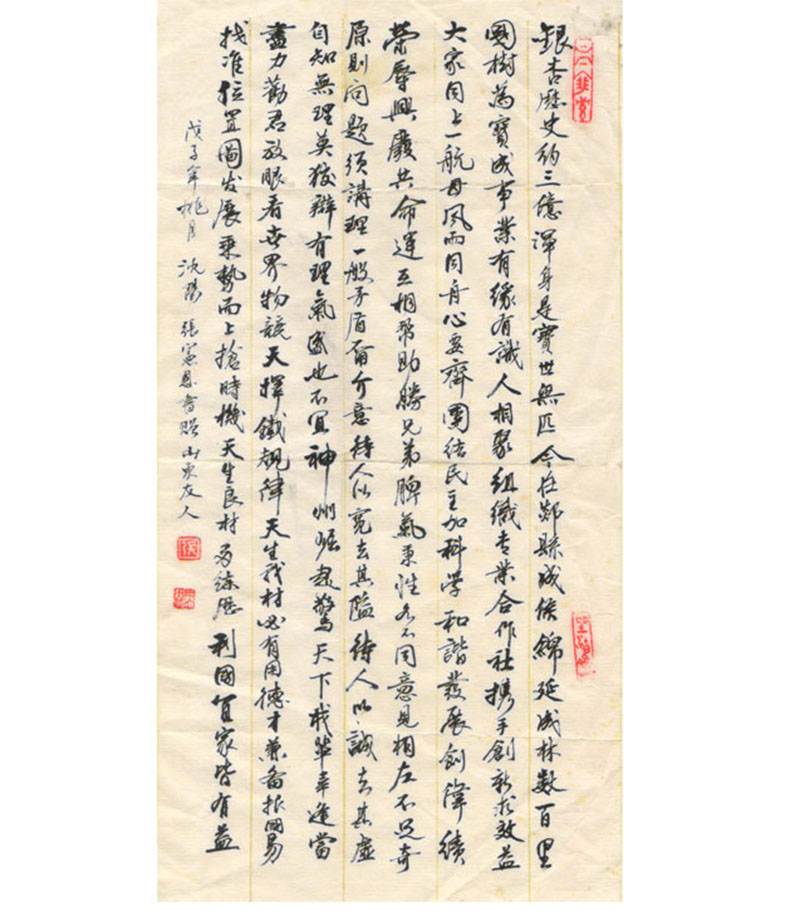 銀杏歷史約三億渾身是寶世無匹今在郯縣成侯綿延成林數百里
國樹為寶成事業有緣有識人相聚組織专業合作社携手創新求效益
大家同上一航母風雨同舟心要齊團结民主加科学和諧發展創偉績
榮辱興廢共命運互相帮助勝兄弟脾氣秉性各不同意見相左不足奇
原則问題須講理一般矛盾当介意待人以寬去其隘待人以誠去其虛
自知無理莫狡辯有理氣盛也不宜神州崛起驚天下我輩幸逢當
盡力勸君放眼看世界物競天擇鐵規律天生我材必有用德才兼备振國易
找准位置圖发展乘勢而上搶時機天生良材多練歷利國宜家皆有益
戊子年桃月沈陽張憲恩書贈山東友人